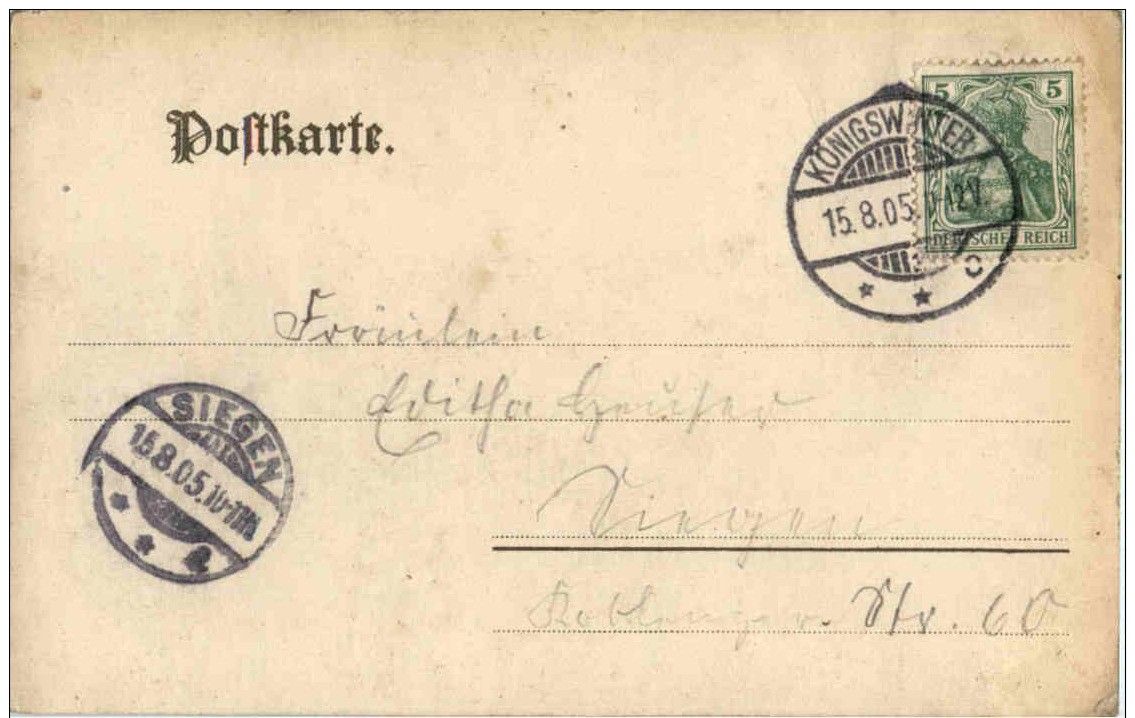 Postkarte.
5 5
DEUTSCHES REICH
KÖNIGSWINTER
15.8.05. 11-12V.
c
Fräulein
Editha Heuser
Siegen
Koblenzer Str. 60
SIEGEN
15.8.05. 10-11N.